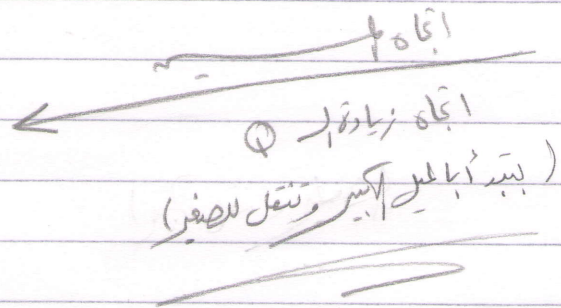 اتجاه السير
اتجاه زيادة الـ Q
(بتبدأ بالميل الكبير وتنتقل للصغير)